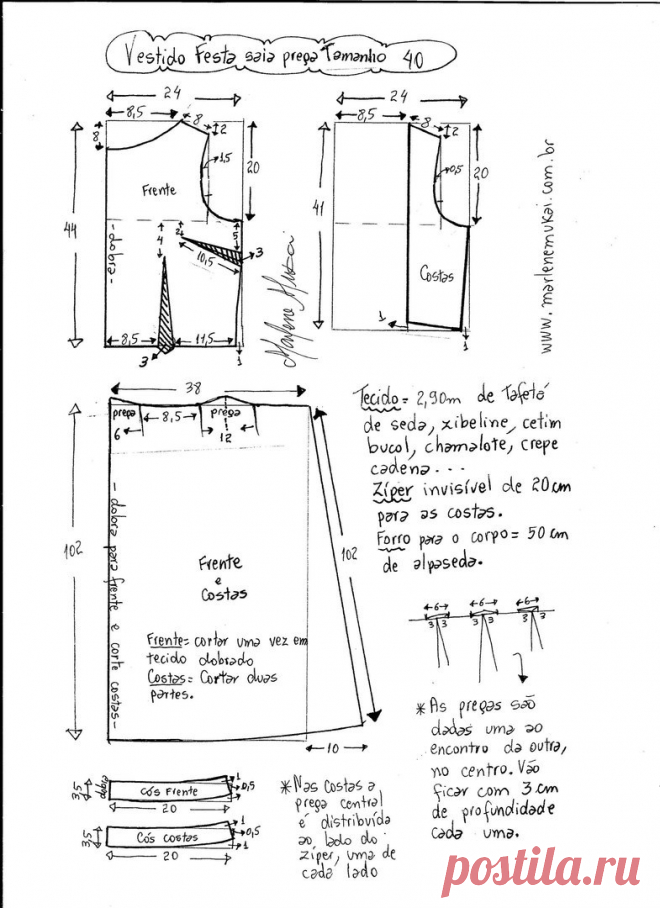 Vestido Festa saia prega Tamanho 40
24
8,5
8
2
8
1,5
20
Frente
44
- dobra -
4
2
5
3
10,5
8,5
11,5
3
1
Marlene Mukai
24
8,5
8
2
0,5
20
41
Costas
1
1
www.marlenemukai.com.br
38
prega
8,5
prega
6
12
102
102
- dobra para frente e corte costas -
Frente
e
Costas
Frente = cortar uma vez em
tecido dobrado
Costas = Cortar duas
partes.
10
Tecido = 2,90m de Tafetá
de seda, zibeline, cetim
bucol, chamalote, crepe
cadena...
Zíper invisível de 20cm
para as costas.
Forro para o corpo = 50 cm
de alpaseda.
6
6
6
3 3
3 3
3 3
* As pregas são
dadas uma ao
encontro da outra,
no centro. Vão
ficar com 3 cm
de profundidade
cada uma.
3,5
dobra
Cós Frente
1
0,5
1
20
3,5
Cós costas
1
0,5
1
20
* Nas Costas a
prega central
é distribuída
ao lado do
zíper, uma de
cada lado
postila.ru